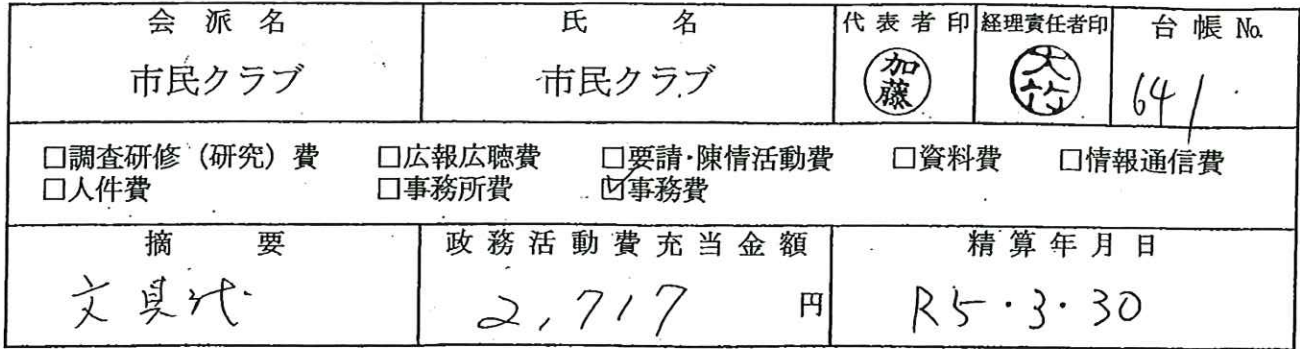 会派名 氏名 代表者印 経理責任者印 台帳No.
市民クラブ 市民クラブ 加藤 大竹 641
□調査研修（研究）費 □広報広聴費 □要請・陳情活動費 □資料費 □情報通信費
□人件費 □事務所費 ☑事務費
摘要 政務活動費充当金額 精算年月日
文具代 2,717円 R5・3・30